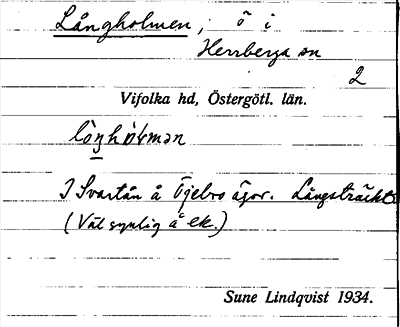 Långholmen, ö i
Herrberga sn
2
Vifolka hd, Östergötl. län.
lòŋhòlmən
I Svartån å Tjebro ägor. Långsträckt
(Väl synlig å ek.)
Sune Lindqvist 1934.